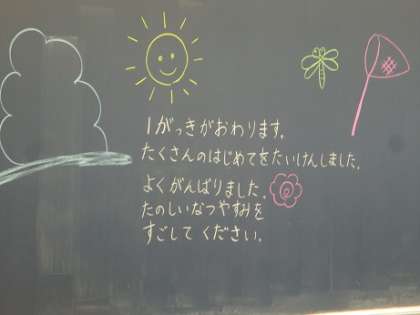 1がっきがおわります。
たくさんのはじめてをたいけんしました。
よくがんばりました。
たのしいなつやすみを
すごしてください。